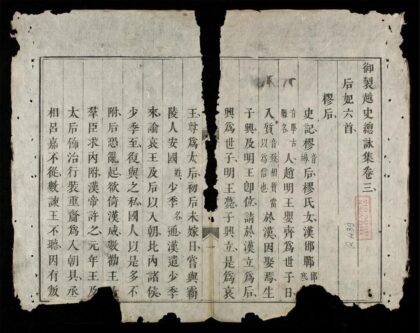 御製越史總詠集卷三
后妃六首
樛后
史記樛后樛氏女漢邯鄲
人趙明王嬰齊為世子日
入質於漢因娶焉生
子興及明王即位請於漢立為后
興為世子明王薨子興立是為哀
王尊為太后初后未嫁日嘗與霸
陵人安國姓少季名通漢遣少季
來諭哀王及后以入朝比內諸侯
少季至復與之私國人以是多不
附后恐亂起欲倚漢威數勸王
羣臣求內附漢帝許之元年王及
太后飭治行裝重齎為入朝具丞
相呂嘉不從數諫王不聽因有叛